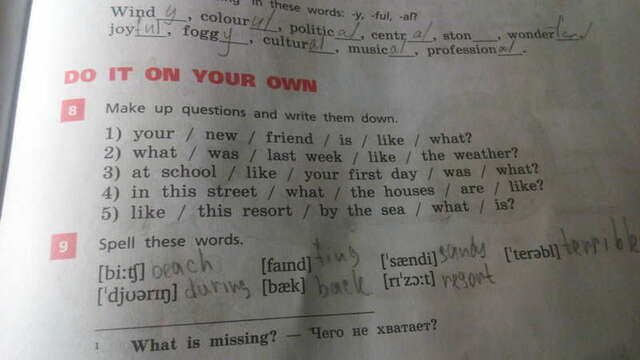 in these words: -y, -ful, -al?
Wind y, colour ul, political, central, ston___, wonder
joyful, foggy, cultural, musical, professional.
DO IT ON YOUR OWN
8 Make up questions and write them down.
1) your / new / friend / is / like / what?
2) what / was / last week / like / the weather?
3) at school / like / your first day / was / what?
4) in this street / what / the houses / are / like?
5) like / this resort / by the sea / what / is?
9 Spell these words.
[bi:ʧ] beach [faɪnd] ['sændi] sands ['terəbl] terrible
['djʊərɪŋ] during [bæk] back [rɪ'zɔ:t] resort
1 What is missing? — Чего не хватает?